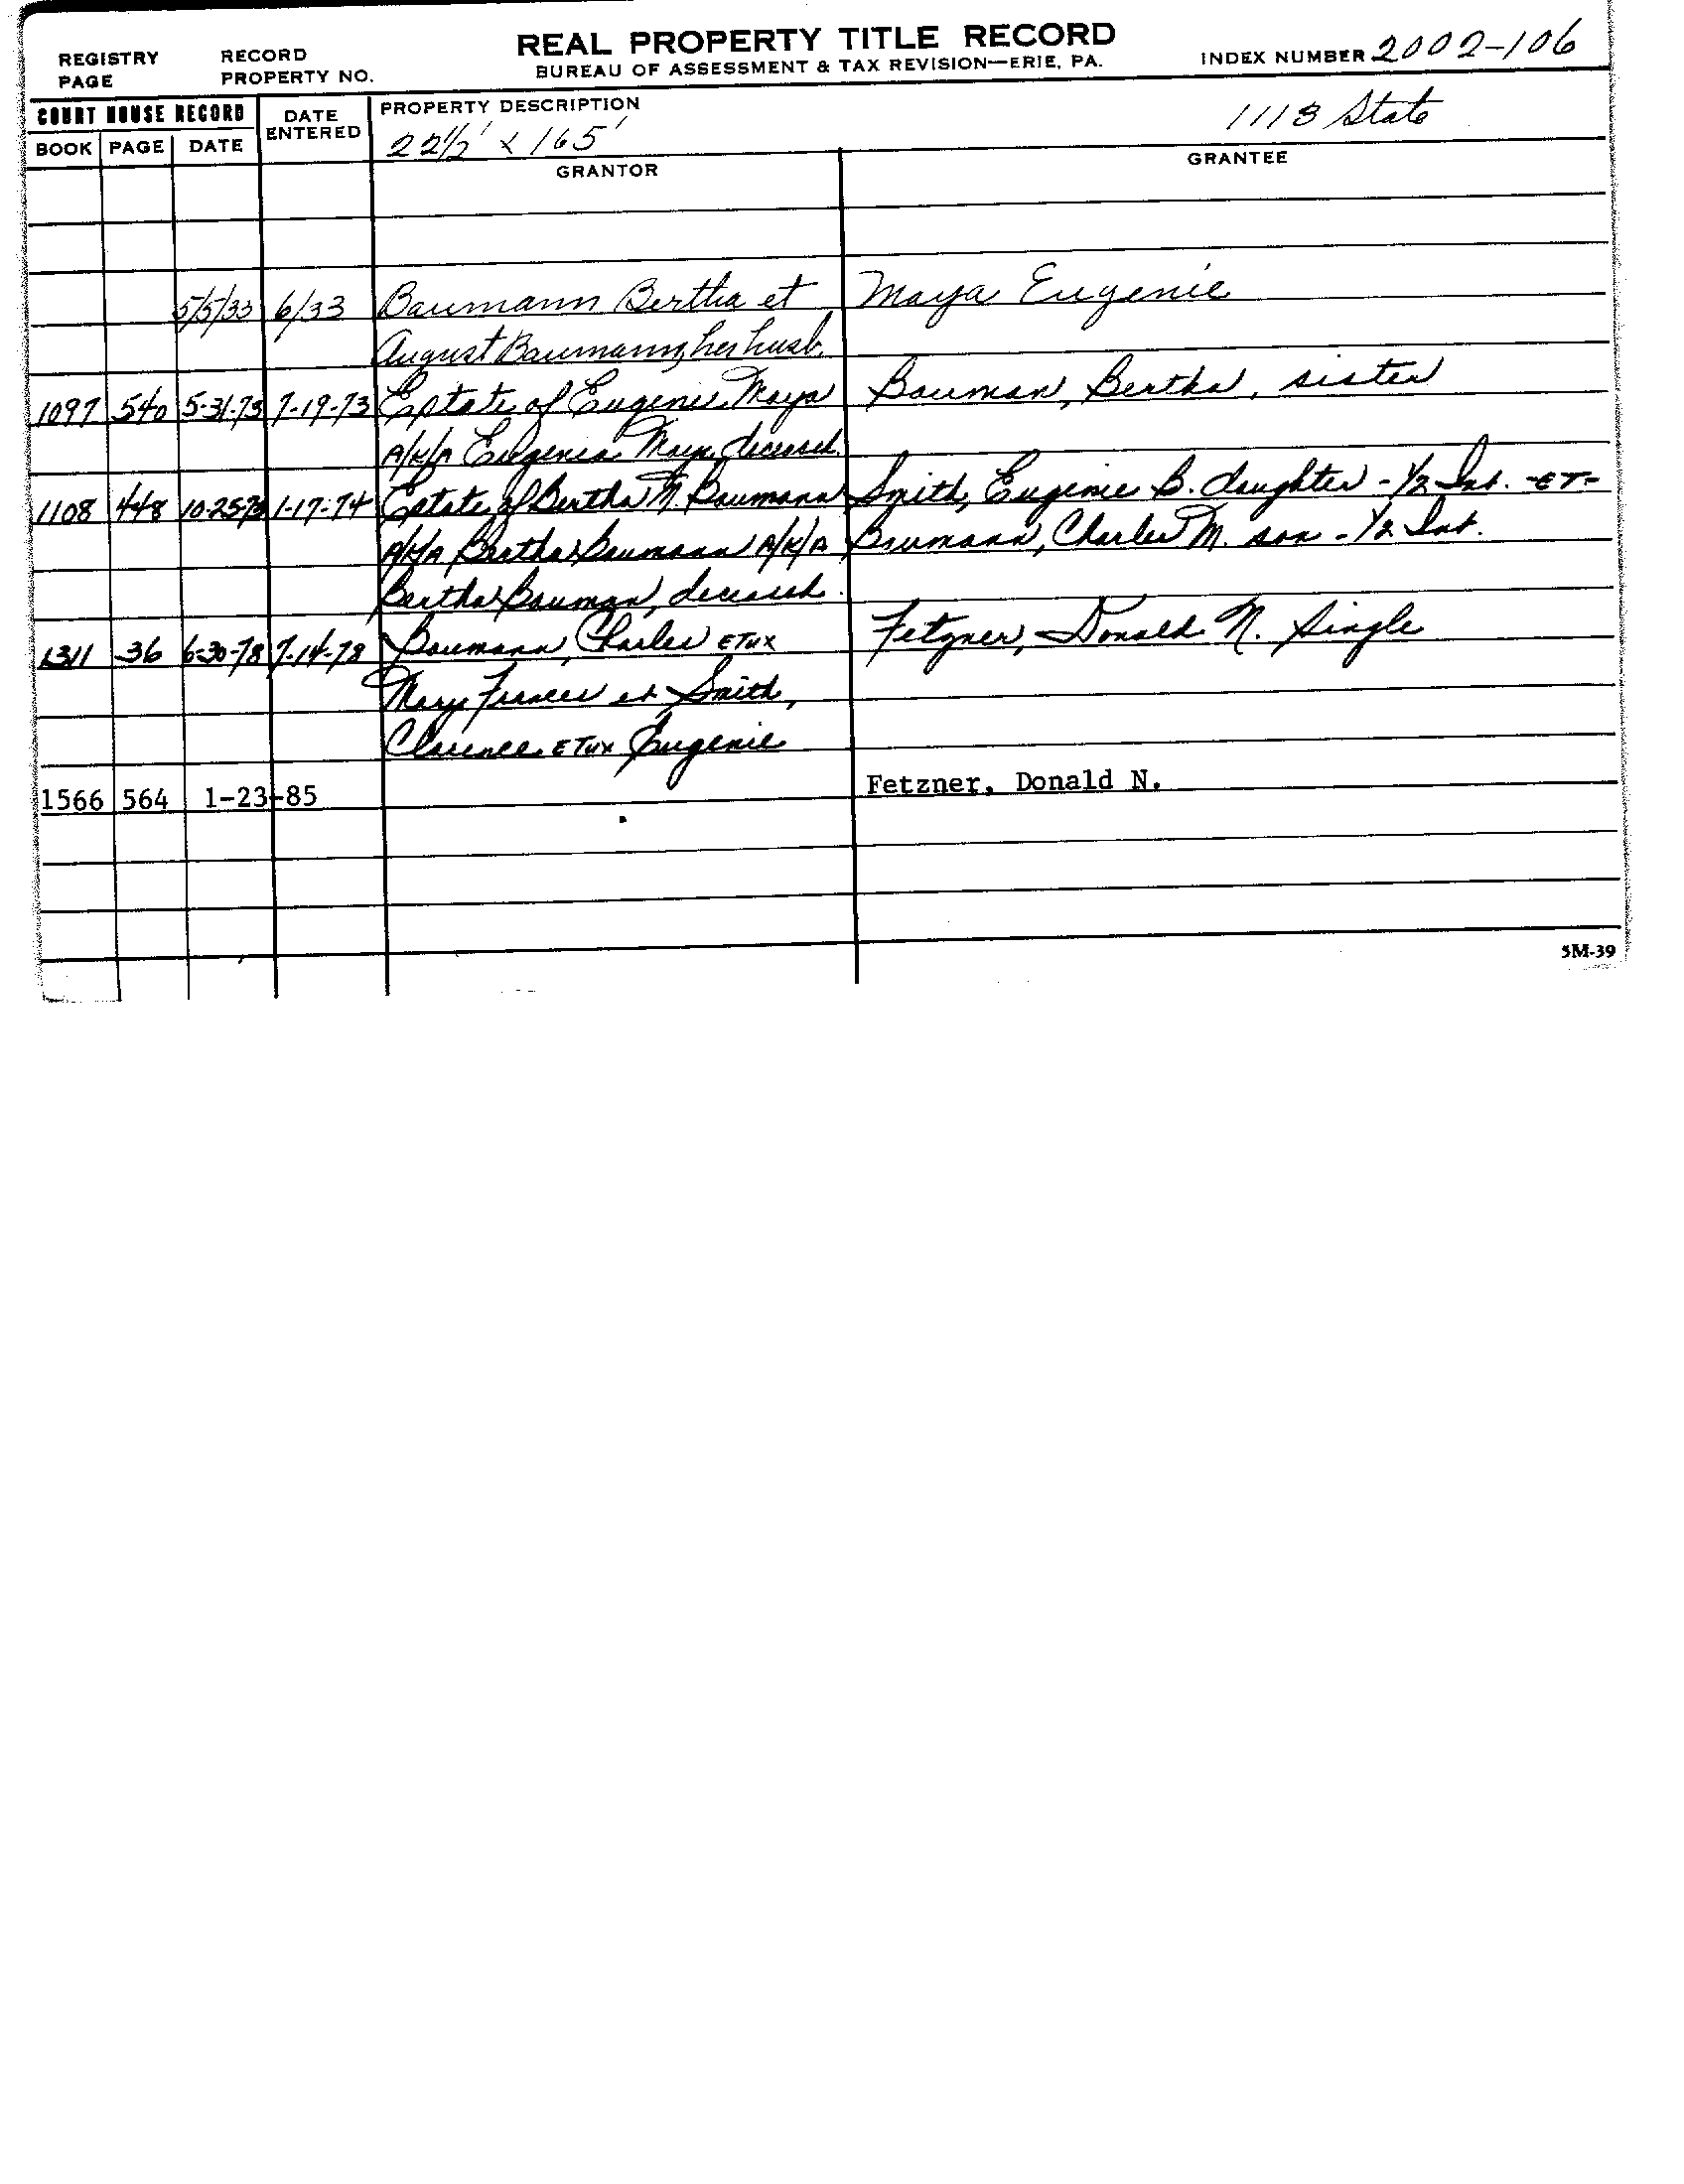 REAL PROPERTY TITLE RECORD
BUREAU OF ASSESSMENT & TAX REVISION—ERIE, PA.
REGISTRY PAGE
RECORD PROPERTY NO.
INDEX NUMBER 2002-106
COURT HOUSE RECORD
BOOK PAGE DATE
DATE ENTERED
PROPERTY DESCRIPTION
22½' x 165'
1113 State
GRANTOR GRANTEE
5/5/33 6/33 Baumann Bertha et Maya Eugenie
August Baumann, her husb.
1097 540 5-31-73 7-19-73 Estate of Eugenie Maya Bauman, Bertha, sister
A/K/A Eugenia Maya, deceased.
1108 448 10-25-73 1-17-74 Estate of Bertha M. Baumann Smith, Eugenie B. daughter - 1/2 Int. -ET-
A/K/A Bertha Baumann A/K/A Baumann, Charles M. son - 1/2 Int.
Bertha Bauman, deceased.
1311 36 6-30-78 7-14-78 Baumann, Charles ETUX Fetzner, Donald N. Single
Mary Frances et Smith,
Clarence ETUX Eugenie
1566 564 1-23-85 Fetzner, Donald N.
5M-39